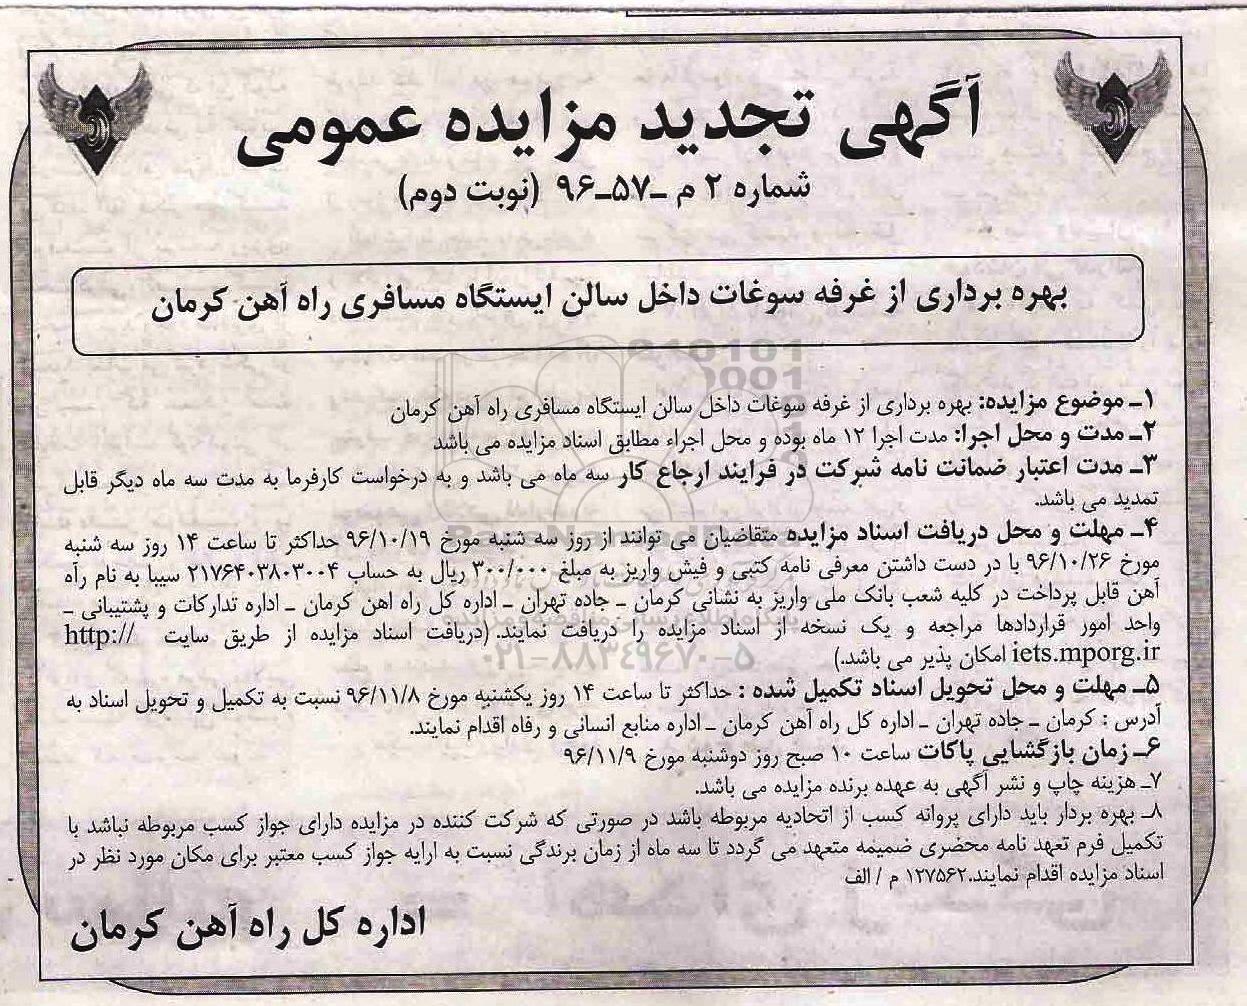 آگهی تجدید مزایده عمومی
شماره ۲ م ـ۵۷ـ۹۶ (نوبت دوم)
بهره برداری از غرفه سوغات داخل سالن ایستگاه مسافری راه آهن کرمان
۱ـ موضوع مزایده: بهره برداری از غرفه سوغات داخل سالن ایستگاه مسافری راه آهن کرمان
۲ـ مدت و محل اجرا: مدت اجرا ۱۲ ماه بوده و محل اجراء مطابق اسناد مزایده می باشد
۳ـ مدت اعتبار ضمانت نامه شرکت در فرایند ارجاع کار سه ماه می باشد و به درخواست کارفرما به مدت سه ماه دیگر قابل
تمدید می باشد.
۴ـ مهلت و محل دریافت اسناد مزایده متقاضیان می توانند از روز سه شنبه مورخ ۹۶/۱۰/۱۹ حداکثر تا ساعت ۱۴ روز سه شنبه
مورخ ۹۶/۱۰/۲۶ با در دست داشتن معرفی نامه کتبی و فیش واریز به مبلغ ۳۰۰/۰۰۰ ریال به حساب ۲۱۷۶۴۰۳۸۰۳۰۰۴ سیبا به نام راه
آهن قابل پرداخت در کلیه شعب بانک ملی واریز به نشانی کرمان ـ جاده تهران ـ اداره کل راه اهن کرمان ـ اداره تدارکات و پشتیبانی ـ
واحد امور قراردادها مراجعه و یک نسخه از اسناد مزایده را دریافت نمایند. (دریافت اسناد مزایده از طریق سایت http://
iets.mporg.ir امکان پذیر می باشد.)
۰۲۱-۸۸۳۴۹۶۷۰-۵
۵ـ مهلت و محل تحویل اسناد تکمیل شده : حداکثر تا ساعت ۱۴ روز یکشنبه مورخ ۹۶/۱۱/۸ نسبت به تکمیل و تحویل اسناد به
آدرس : کرمان ـ جاده تهران ـ اداره کل راه آهن کرمان ـ اداره منابع انسانی و رفاه اقدام نمایند.
۶ـ زمان بازگشایی پاکات ساعت ۱۰ صبح روز دوشنبه مورخ ۹۶/۱۱/۹
۷ـ هزینه چاپ و نشر آگهی به عهده برنده مزایده می باشد.
۸ـ بهره بردار باید دارای پروانه کسب از اتحادیه مربوطه باشد در صورتی که شرکت کننده در مزایده دارای جواز کسب مربوطه نباشد با
تکمیل فرم تعهد نامه محضری ضمیمه متعهد می گردد تا سه ماه از زمان برندگی نسبت به ارایه جواز کسب معتبر برای مکان مورد نظر در
اسناد مزایده اقدام نمایند.۱۲۷۵۶۲ م / الف
اداره کل راه آهن کرمان